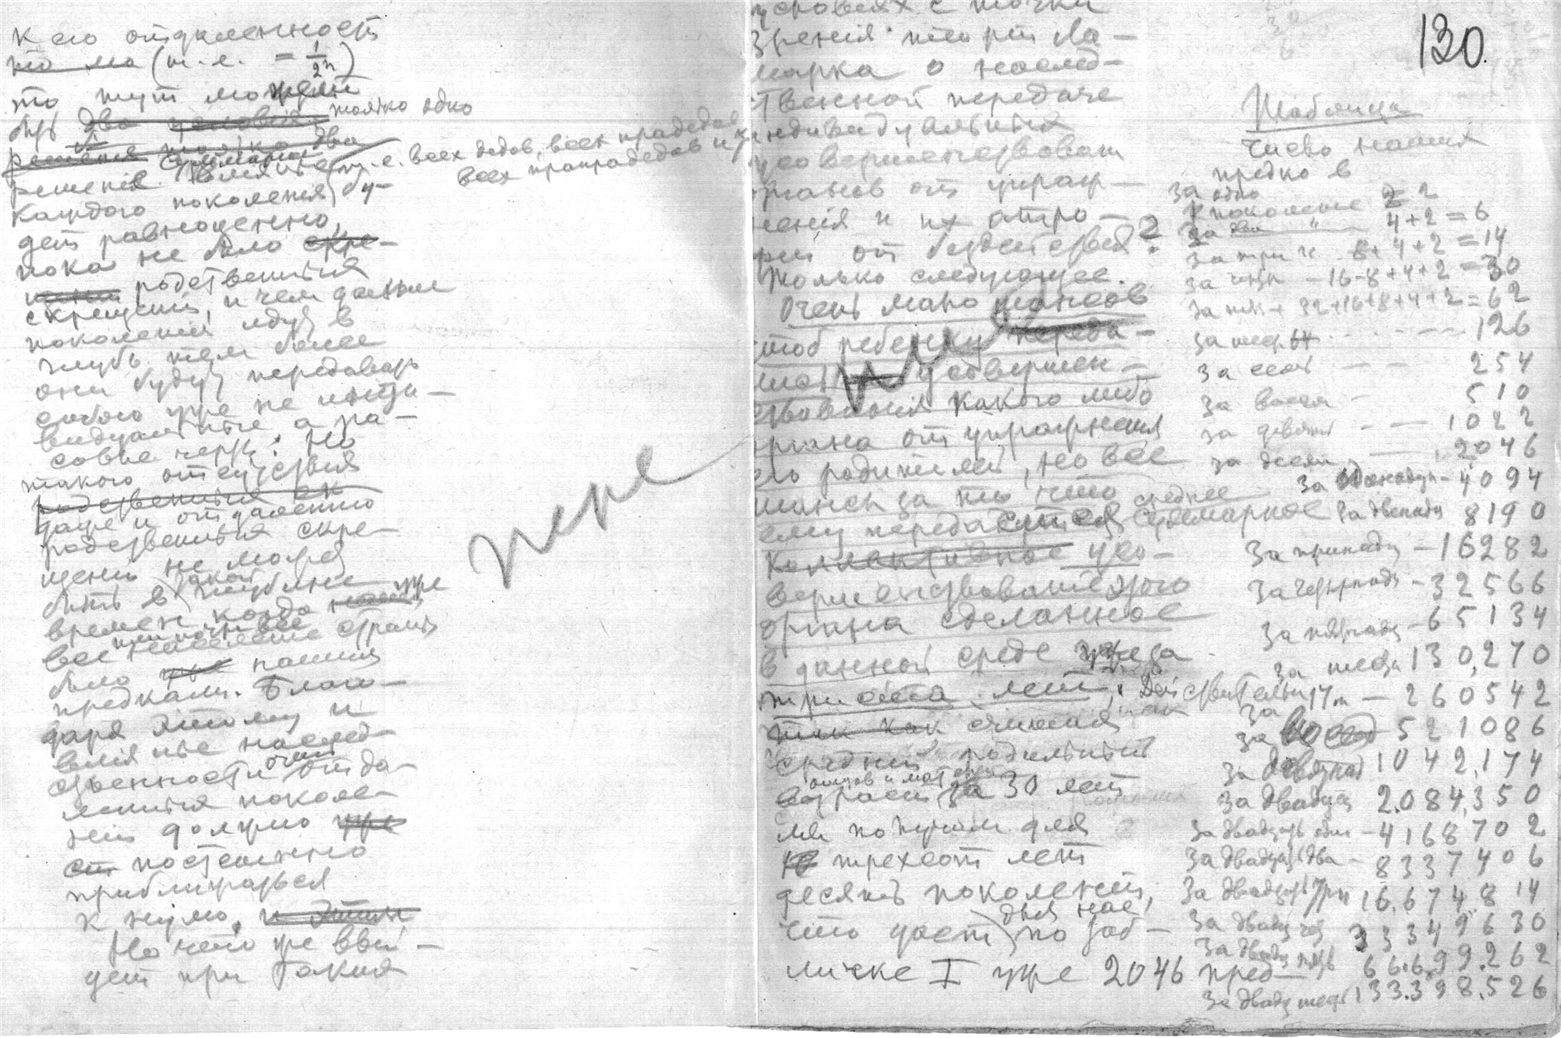 к его отдаленность
то ма (т.е. = 1/2n)
то тут может
быть два человека только одно
решения только два
решение. Суммарное влияние (т.е. всех дедов, всех прадедов,
каждого поколения бу- всех прапрадедов и
дет равноценно,
пока не было скре-
родственныя
скрещений, и чем дальше
поколения идут в
глубь тем более
они будут передавать
уже не инди-
видуальные а ра-
совые черты. Но
такого отсутствия
родственныя ск
даже и отдаленно
родственныя скре-
щений не может
быть в такой глубине
времен когда уже
все население страны
было нашими
предками. Благо-
даря этому и
влияние наслед-
ственности отда-
ленныя поколе-
ний должно уже
ст постепенно
приближаться
к нулю, и этим
Но что же вый-
дет при таких
пере
условиях с точки
зренія теоріи Ла-
марка о наслед-
ственной передаче
индивидуальныя
усовершенствован
органов от упраж-
ненія и их атро-
фіи от бездействія?
Только следующее.
Очень мало шансов
чтоб ребенку переда-
лось усовершен-
ствованія какого либо
органа от упражненія
его родителей, но все
шансы за то что
ему передастся среднее суммарное
коллективное усо-
вершенствованіе этого
органа сделанное
в данной среде уже за
триста лет. Действительно
так как считая
средній родильный
отцов и матерей
возраст за 30 лет
мы получим для
трехсот лет
десять поколеній,
что дает для нас по таб-
личке I уже 2046 пред-
130.
Таблица
число наших
предков
за одно
поколение 2 = 2
За два " 4+2=6
За три ч. 8+4+2=14
За четы - 16+8+4+2=30
За пять + 32+16+8+4+2=62
За шесть - - - 126
За семь - - 254
За восем - 510
За девять - - 1022
За десять 2046
За одинадц - 4094
За двенадц 8190
За тринадц - 16282
За четырнадц - 32566
За пятнадц - 65134
За шестн 130,270
За 17т - 260542
За восем 521086
За девятнад 1042,174
За двадцать 2.084,350
За двадцать один - 4168702
За двадцать два - 8337406
За двадцать три 16.674814
За двадц чет 33349630
За двадц пять 66.699.262
За двадц шесть 133.398.526